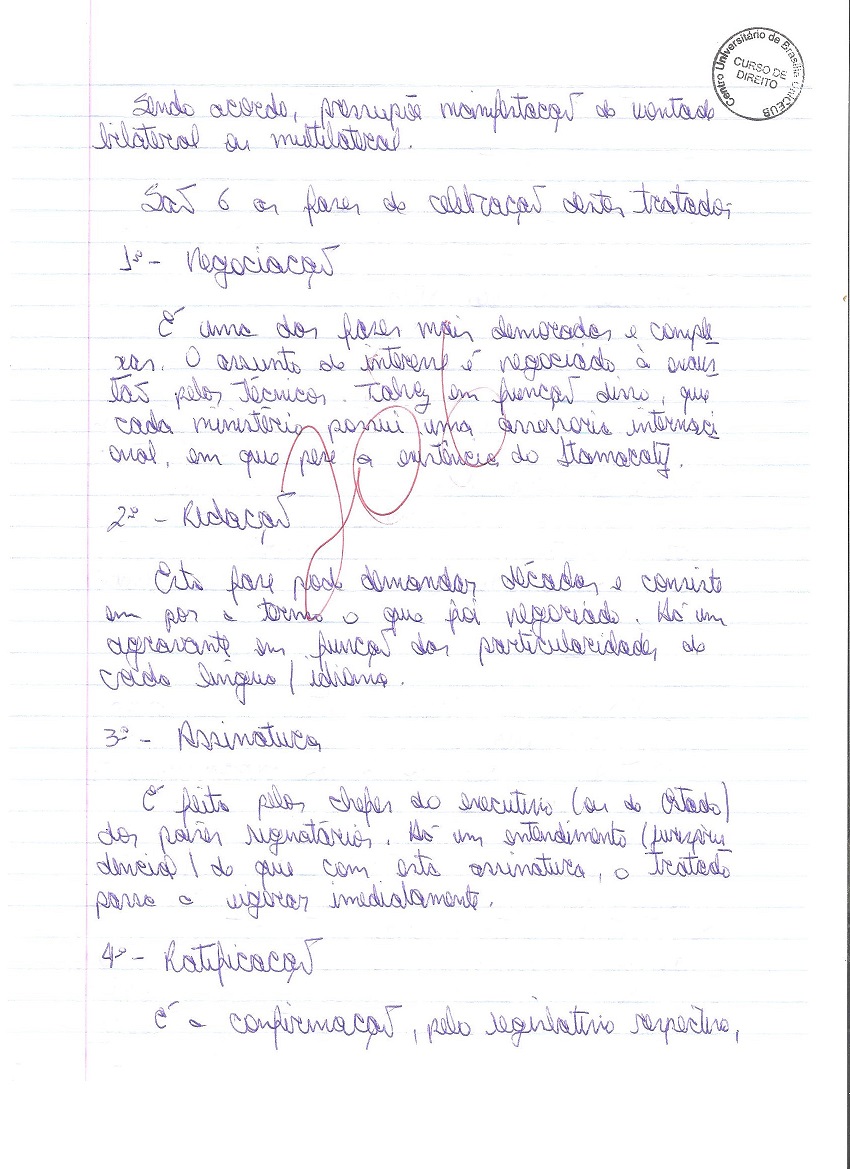 Centro Universitário de Brasília UniCEUB
CURSO DE
DIREITO
Sendo acordo, pressupõe manifestação de vontade
bilateral ou multilateral.
São 6 as fases de celebração destes tratados
1ª - Negociação
É uma das fases mais demoradas e comple
xas. O assunto de interesse é negociado à exaus
tão pelos técnicos. Talvez em função disso, que
cada ministério possui uma assessoria internaci
onal, em que pese a existência do Itamaraty.
2ª - Redação
Esta fase pode demandar décadas e consiste
em por a termo o que foi negociado. Há um
agravante em função das particularidades de
cada língua / idioma.
3ª - Assinatura
É feita pelos chefes do executivo (ou de Estado)
dos países signatários. Há um entendimento (jurispru
dencial) de que com esta assinatura, o tratado
passa a vigorar imediatamente.
4ª - Ratificação
É a confirmação, pelo legislativo respectivo,